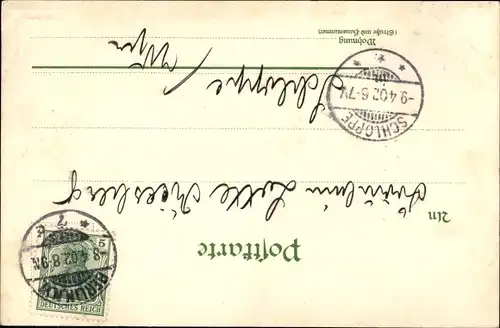 Postkarte
An
Fräulein Lotte Kiesberg
Schloppe /
Wpr
Wohnung
(Straße und Hausnummer)
SCHLOPPE
-9.4.02.6-7V.
BERLIN, N.W.
-8.4.02.8-9N.
* 7 c
5
DEUTSCHES REICH